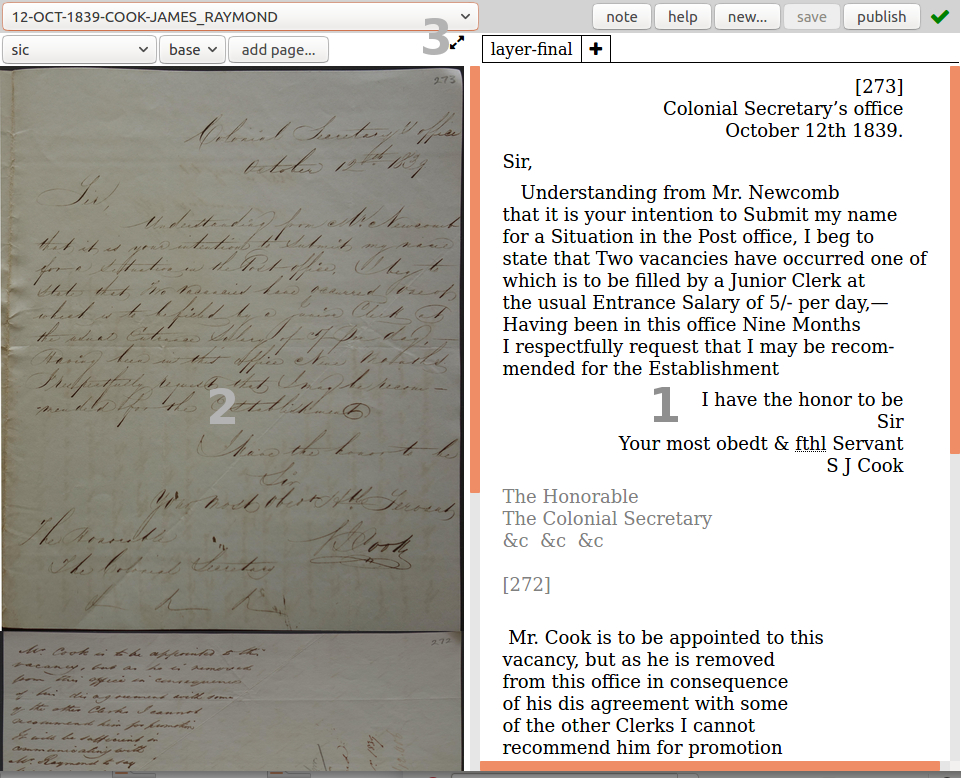 12-OCT-1839-COOK-JAMES_RAYMOND
note
help
new...
save
publish
sic
base
add page...
3
layer-final
+
273
Colonial Secretary's office
October 12th 1839
Sir,
Understanding from Mr. Newcomb
that it is your intention to Submit my name
for a Situation in the Post office, I beg to
state that Two vacancies have occurred one of
which is to be filled by a Junior Clerk at
the usual Entrance Salary of 5/- per day,
Having been in this office Nine Months
I respectfully request that I may be recom-
mended for the Establishment
2
I have the honor to be
Sir
Your most obedt fthl Servant
S J Cook
The Honorable
The Colonial Secretary
&c &c &c
272
Mr. Cook is to be appointed to this
vacancy, but as he is removed
from this office in consequence
of his dis agreement with some
of the other Clerks I cannot
recommend him for promotion
It will be sufficient in
communicating with
Mr. Raymond to say
[273]
Colonial Secretary’s office
October 12th 1839.
Sir,
Understanding from Mr. Newcomb
that it is your intention to Submit my name
for a Situation in the Post office, I beg to
state that Two vacancies have occurred one of
which is to be filled by a Junior Clerk at
the usual Entrance Salary of 5/- per day,—
Having been in this office Nine Months
I respectfully request that I may be recom-
mended for the Establishment
1
I have the honor to be
Sir
Your most obedt & fthl Servant
S J Cook
The Honorable
The Colonial Secretary
&c &c &c
[272]
Mr. Cook is to be appointed to this
vacancy, but as he is removed
from this office in consequence
of his dis agreement with some
of the other Clerks I cannot
recommend him for promotion